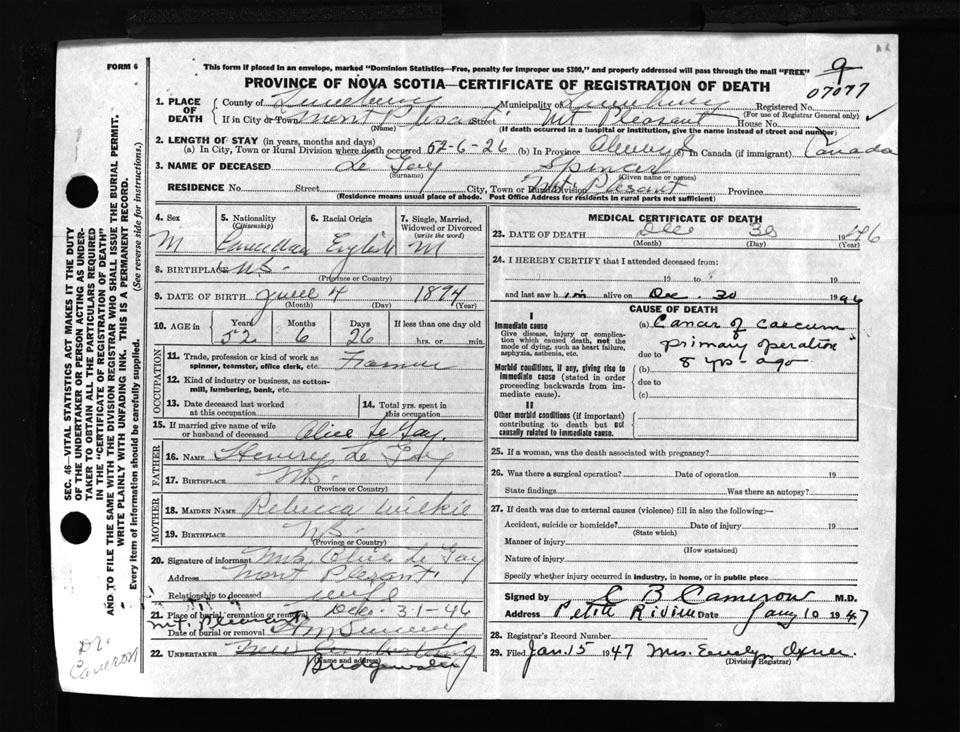 FORM 6
This form if placed in an envelope, marked "Dominion Statistics—Free, penalty for improper use $300," and properly addressed will pass through the mail "FREE"
9
07077
PROVINCE OF NOVA SCOTIA—CERTIFICATE OF REGISTRATION OF DEATH
1. PLACE OF DEATH
County of Lunenburg Municipality of Lunenburg Registered No.
(For use of Registrar General only)
If in City or Town Mont Plesant Street Mt Plesant House No.
(Name) (If death occurred in a hospital or institution, give the name instead of street and number)
2. LENGTH OF STAY (in years, months and days)
(a) In City, Town or Rural Division where death occurred 52-6-26 (b) In Province (c) In Canada (if immigrant) Canada
3. NAME OF DECEASED Spincer
(Surname) (Given name or names)
RESIDENCE No. Street City, Town or Rural Division Mt Plesant Province
(Residence means usual place of abode. Post Office Address for residents in rural parts not sufficient)
4. Sex 5. Nationality (Citizenship) 6. Racial Origin 7. Single, Married, Widowed or Divorced (write the word)
M Canadian English M
8. BIRTHPLACE N.S.
(Province or Country)
9. DATE OF BIRTH June 4 1894
(Month) (Day) (Year)
10. AGE in Years Months Days If less than one day old
52 6 26 hrs. or min.
OCCUPATION
11. Trade, profession or kind of work as spinner, teamster, office clerk, etc.
12. Kind of industry or business, as cotton-mill, lumbering, bank, etc.
13. Date deceased last worked at this occupation 14. Total yrs. spent in this occupation
15. If married give name of wife or husband of deceased Alice
FATHER
16. Name Henry
17. BIRTHPLACE N.S.
(Province or Country)
MOTHER
18. MAIDEN NAME Rebecca Wilkie
19. BIRTHPLACE N.S.
(Province or Country)
20. Signature of informant Mrs
Address Mont Plesant
Relationship to deceased wife
21. Place of burial cremation or removal Dec. 31-46
Date of burial or removal
22. UNDERTAKER
(Name and address)
Bridgewater
MEDICAL CERTIFICATE OF DEATH
23. DATE OF DEATH Dec 30 1946
(Month) (Day) (Year)
24. I HEREBY CERTIFY that I attended deceased from:
19 to 19
and last saw him alive on Dec. 30 1946
CAUSE OF DEATH
I
Immediate cause
Give disease, injury or complication which caused death, not the mode of dying, such as heart failure, asphyxia, asthenia, etc.
(a) Cancer of caecum
primary operation
due to 8 yrs ago
Morbid conditions, if any, giving rise to immediate cause (stated in order proceeding backwards from immediate cause).
(b)
due to
(c)
II
Other morbid conditions (if important) contributing to death but not causally related to immediate cause.
25. If a woman, was the death associated with pregnancy?
26. Was there a surgical operation? Date of operation 19
State findings Was there an autopsy?
27. If death was due to external causes (violence) fill in also the following:—
Accident, suicide or homicide? Date of injury 19
(State which)
Manner of injury
(How sustained)
Nature of injury
Specify whether injury occurred in industry, in home, or in public place
Signed by C B Cameron M.D.
Address Petite Riviere Date Jany 10 1947
28. Registrar's Record Number
29. Filed Jan. 15 1947 Mrs. Evelyn
(Division Registrar)
SEC. 46—VITAL STATISTICS ACT MAKES IT THE DUTY
OF THE UNDERTAKER OR PERSON ACTING AS UNDER-
TAKER TO OBTAIN ALL THE PARTICULARS REQUIRED
IN THE "CERTIFICATE OF REGISTRATION OF DEATH"
AND TO FILE THE SAME WITH THE DIVISION REGISTRAR WHO SHALL ISSUE THE BURIAL PERMIT.
WRITE PLAINLY WITH UNFADING INK. THIS IS A PERMANENT RECORD.
Every item of information should be carefully supplied. (See reverse side for instructions.)
Dr.
Cameron